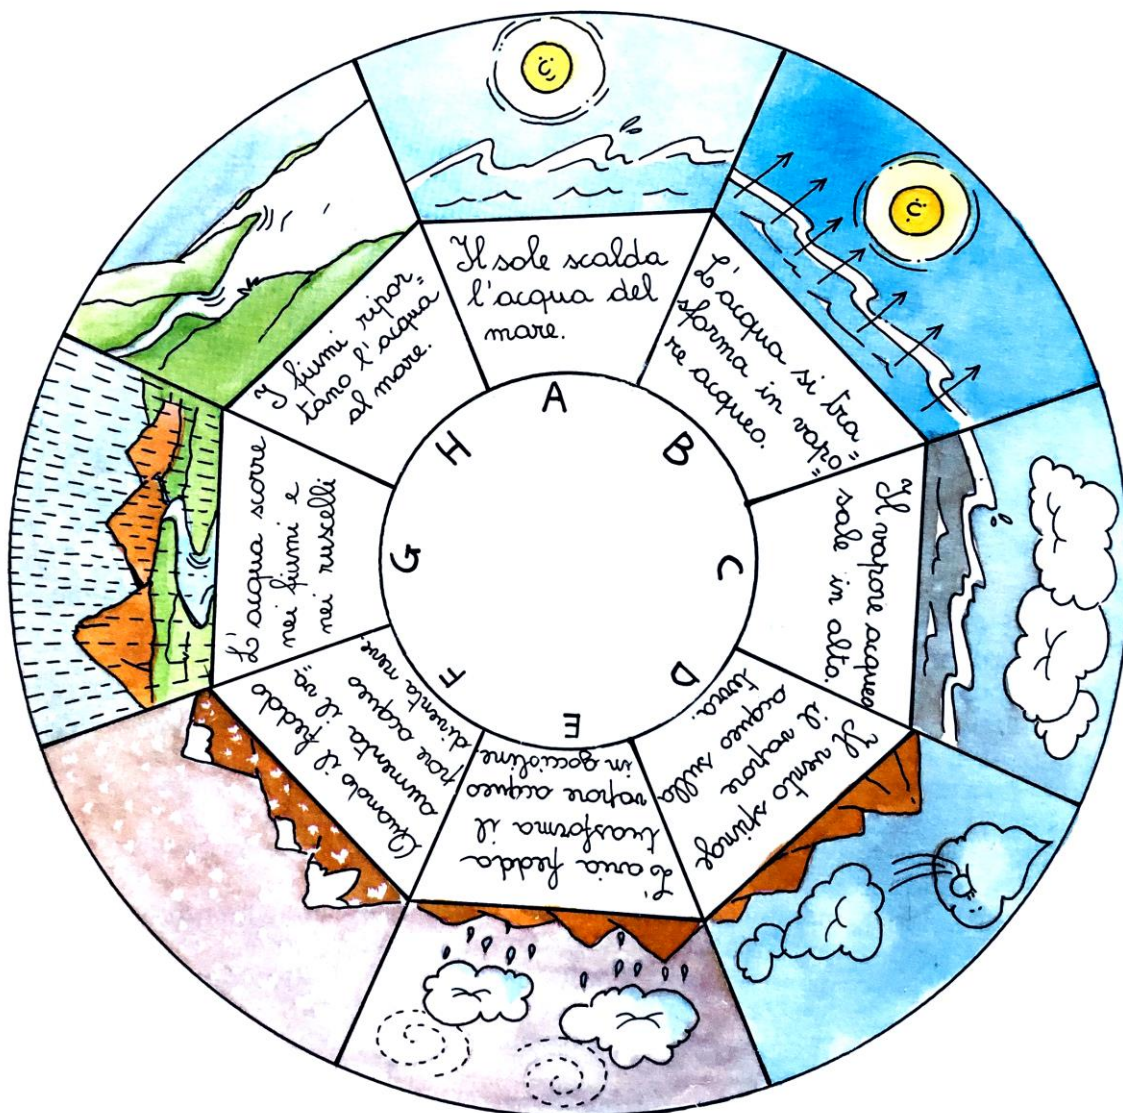 Il sole scalda
l'acqua del
mare.
A
L'acqua si tra=
sforma in vapo=
re acqueo.
B
Il vapore acqueo
sale in alto.
C
Il vento spinge
il vapore
acqueo sulla
terra.
D
L'aria fredda
trasforma il
vapore acqueo
in goccioline
E
Quando il freddo
aumenta il va=
pore acqueo
diventa neve.
F
L'acqua scorre
nei fiumi e
nei ruscelli
G
I fiumi ripor=
tano l'acqua
al mare.
H